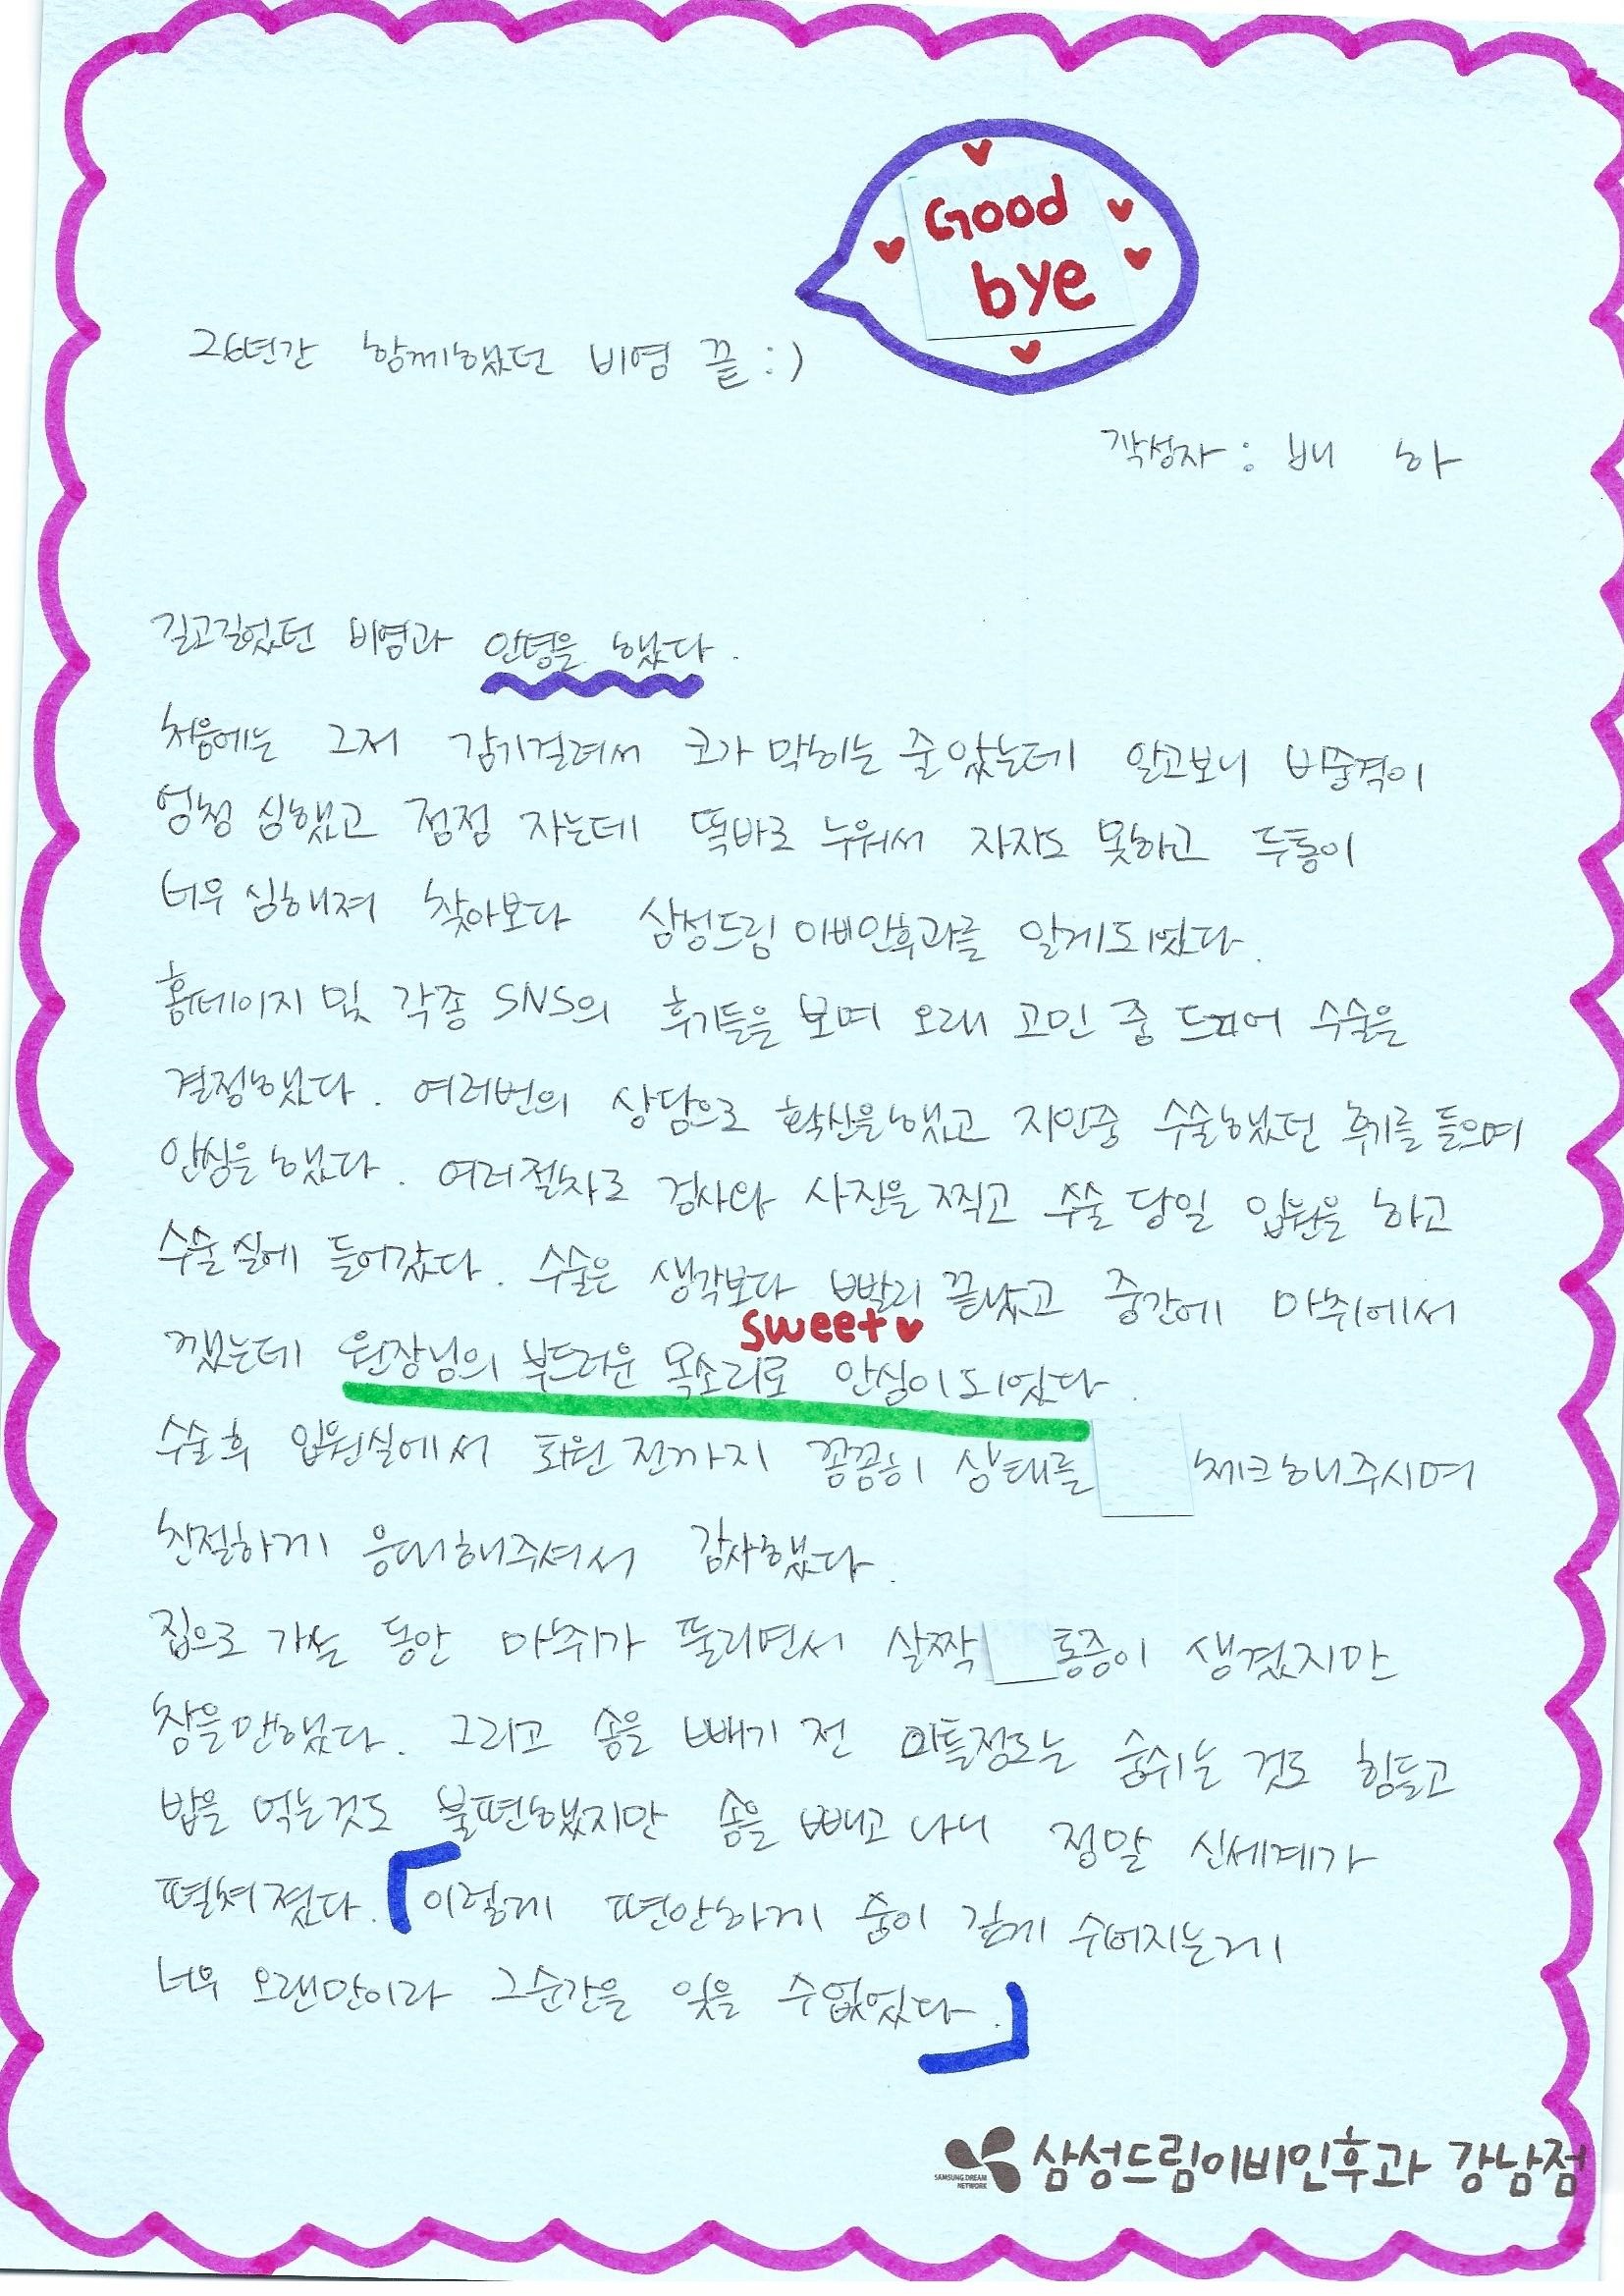 Good
bye
26년간 함께했던 비염 끝 :)
작성자 : 배 하
길고길었던 비염과 안녕을 했다.
처음에는 그저 감기걸려서 코가 막히는 줄 알았는데 알고보니 비중격이
엄청 심했고 점점 자는데 똑바로 누워서 자지도 못하고 두통이
너무 심해져 찾아보다 삼성드림 이비인후과를 알게되었다.
홈페이지 및 각종 SNS의 후기들을 보며 오래 고민 중 드디어 수술은
결정했다. 여러번의 상담으로 확신을했고 지인중 수술했던 후기를 들으며
안심을 했다. 여러절차로 검사와 사진을 찍고 수술 당일 입원을 하고
수술실에 들어갔다. 수술은 생각보다 빨리 끝났고 중간에 마취에서
sweet
깼는데 원장님의 부드러운 목소리로 안심이 되었다.
수술후 입원실에서 퇴원 전까지 꼼꼼히 상태를 체크해주시며
친절하게 응대해주셔서 감사했다.
집으로 가는 동안 마취가 풀리면서 살짝 통증이 생겼지만
참을만했다. 그리고 솜을 빼기 전 이틀정도는 숨쉬는 것도 힘들고
밥을 먹는것도 불편했지만 솜을 빼고 나니 정말 신세계가
펼쳐졌다. 「이렇게 편안하게 숨이 깊게 쉬어지는게
너무 오랜만이라 그순간을 잊을 수 없었다.」
SAMSUNG DREAM
NETWORK
삼성드림이비인후과 강남점